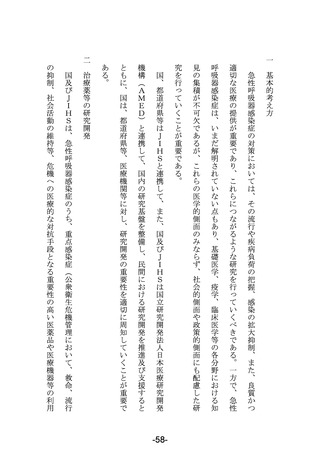 一　基本的考え方
急性呼吸器感染症の対策においては、その流行や疾病負荷の把握、感染の拡大抑制、また、良質かつ
適切な医療の提供が重要であり、これらにつながるような研究を行っていくべきである。一方で、急性
呼吸器感染症は、いまだ解明されていない点もあり、基礎医学、疫学、臨床医学等の各分野における知
見の集積が不可欠であるが、これらの医学的側面のみならず、社会的側面や政策的側面にも配慮した研
究を行っていくことが重要である。
国、都道府県等はＪＩＨＳと連携して、また、国及びＪＩＨＳは国立研究開発法人日本医療研究開発
機構（ＡＭＥＤ）と連携して、国内の研究基盤を整備し、民間における研究開発を推進及び支援すると
ともに、国は、都道府県等、医療機関等に対し、研究開発の重要性を適切に周知していくことが重要で
ある。
二　治療薬等の研究開発
国及びＪＩＨＳは、急性呼吸器感染症のうち、重点感染症（公衆衛生危機管理において、救命、流行
の抑制、社会活動の維持等、危機への医療的な対抗手段となる重要性の高い医薬品や医療機器等の利用
-58-